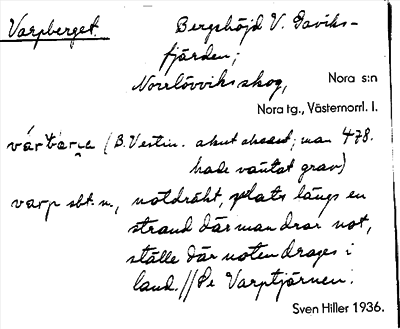 Varpberget. Bergshöjd V. Gaviks-
fjärden;
Norrlövviks skog, Nora s:n
Nora tg., Västernorrl. l.
(B. Vestin. akut accent; man 478.
hade väntat grav)
varp sbt. n., notdräkt, plats längs en
strand där man drar not,
ställe där noten drages i
land. // Se Varptjärnen.
Sven Hiller 1936.